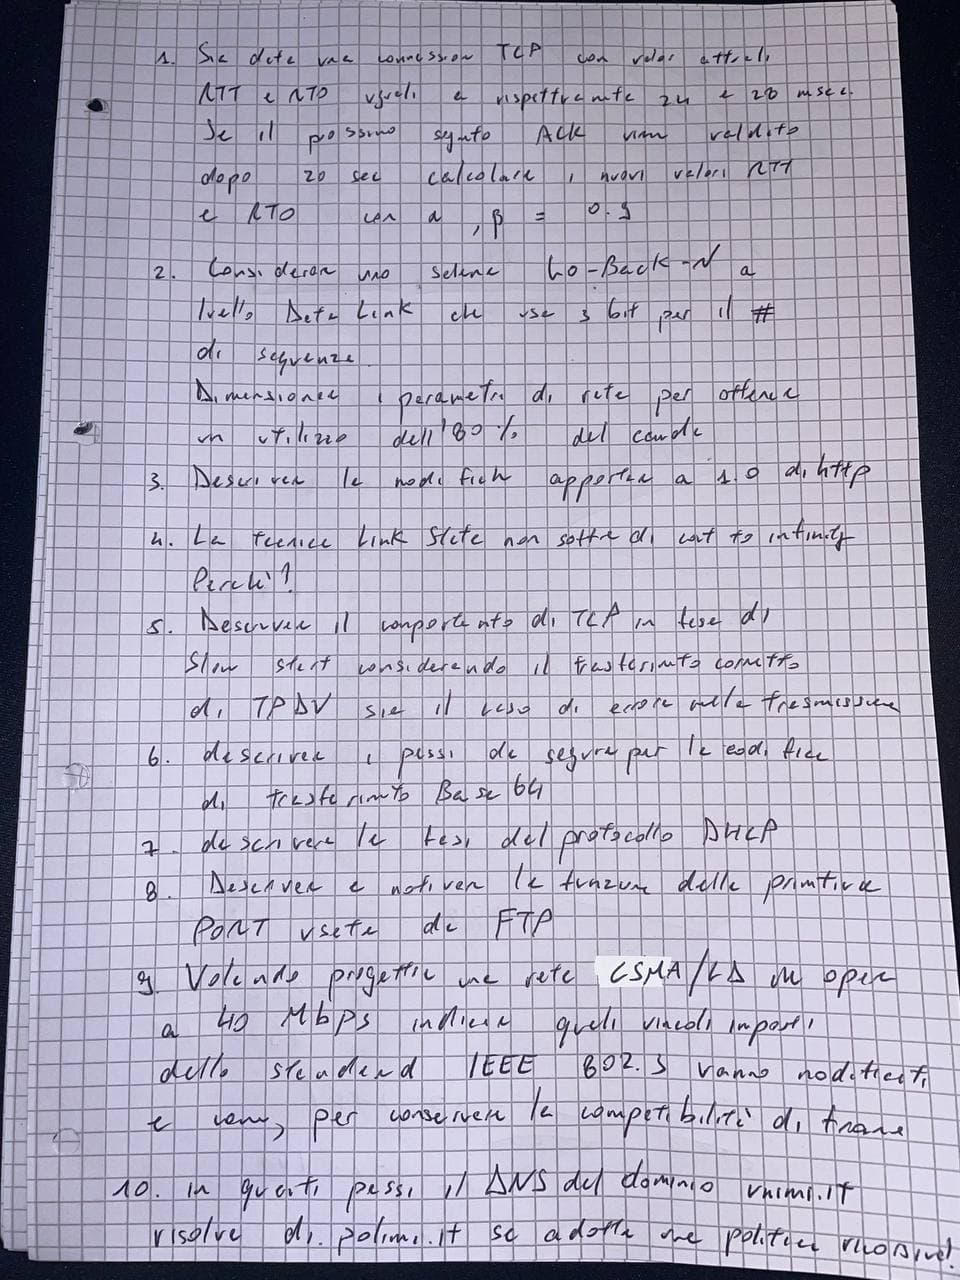 1. Sia data una connessione TCP con valori attuali
RTT e RTO uguali a rispettivamente 24 e 28 msec.
Se il prossimo segmto ACK viene validato
dopo 20 sec calcolare i nuovi valori RTT
e RTO con α, β = 0.9
2. Considerare uno schema Go-Back-N a
livello Data Link che usa 3 bit per il #
di sequenza.
Dimensionare i parametri di rete per ottenere
un utilizzo dell'80% del canale
3. Descrivere le modifiche apportate a 1.0 di http
4. La tecnica Link State non soffre di count to infinity
Perchè?
5. Descrivere il comportamento di TCP in fase di
Slow start considerando il trasferimento corretto
di TPDU sia il caso di errore nella trasmissione
6. descrivere i passi da seguire per la codifica
di trasferimento Base 64
7. descrivere le fasi del protocollo DHCP
8. Descrivere e motivare la funzione della primitiva
PORT usata da FTP
9. Volendo progettare una rete CSMA/CD che opera
a 40 Mbps indicare quali vincoli imposti
dallo standard IEEE 802.3 vanno modificati
e come, per conservare la compatibilità di frame
10. in quanti passi il DNS del dominio unimi.it
risolve di.polimi.it se adotta una politica ricorsiva?